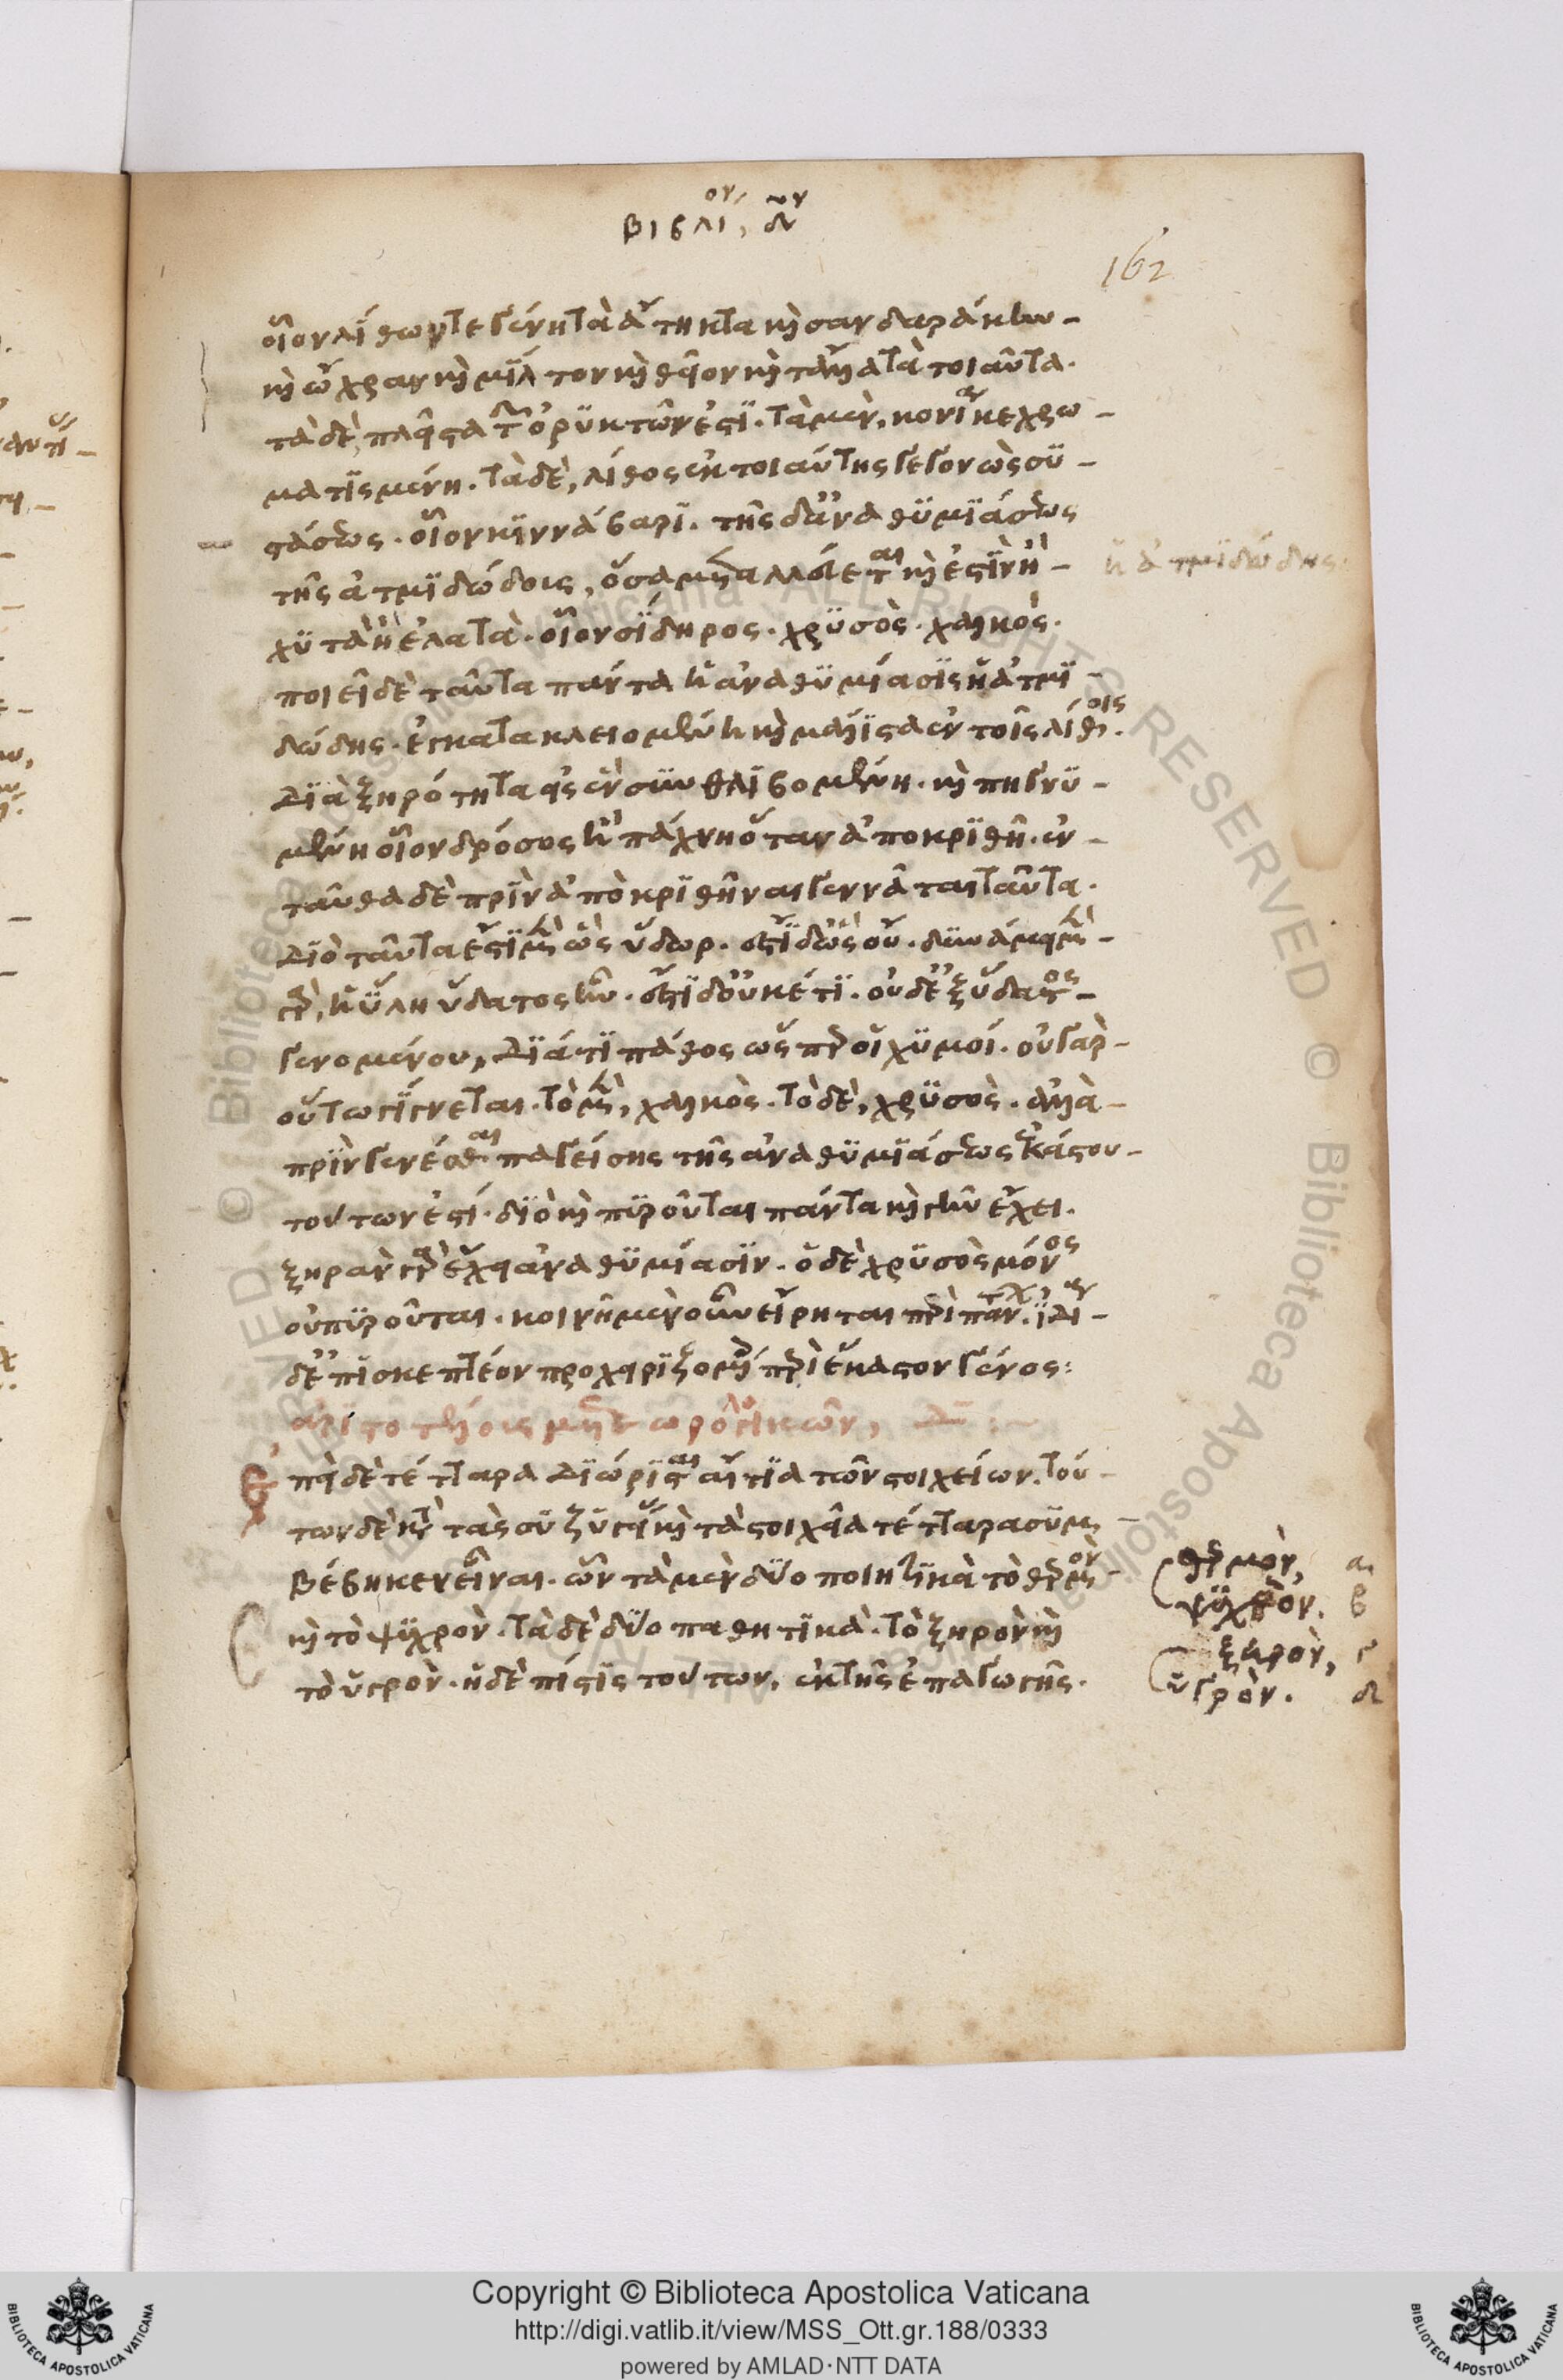 βιβλίον δον
162
οἷον λίθων τε γένη τὰ ἄτηκτα καὶ σανδαράκην
καὶ ὤχραν καὶ μίλτον καὶ θεῖον καὶ τἄλλα τὰ τοιαῦτα.
τὰ δὲ πλεῖστα τῶν ὀρυκτῶν ἐστὶ. τὰ μὲν, κονία κεχρω
ματισμένη. τὰ δὲ, λίθος ἐκ τοιαύτης γεγονὼς συ
στάσεως. οἷον κιννάβαρι. τῆς δ' ἀναθυμιάσεως
τῆς ἀτμιδώδοις, ὅσα μεταλλεύεται καὶ ἐστὶν ἢ
ἡ ἀτμιδώδης:
χυτὰ ἢ ἐλατὰ. οἷον σίδηρος. χρυσὸς. χαλκὸς.
ποιεῖ δὲ ταῦτα πάντα ἡ ἀναθυμίασις ἡ ἀτμι
δώδης. ἐγκατακλειομένη καὶ μάλιστα ἐν τοῖς λίθοις.
διὰ ξηρότητα εἰς ἓν συνθλιβομένη. καὶ πηγνυ
μένη οἷον δρόσος ἢ πάχνη ὅταν ἀποκριθῇ. ἐν
ταῦθα δὲ πρὶν ἀποκριθῆναι γεννᾶται ταῦτα.
διὸ ταῦτα ἔστι μὲν ὡς ὕδωρ. ἔστι δ' ὡς οὔ. δυνάμει μὲν
γὰρ, ἡ ὕλη ὕδατος ἦν. ἔστι δ' οὐκέτι. οὐδ' ἐξ ὕδατος
γενομένου, διά τι πάθος ὥσπερ οἱ χυμοί. οὐ γὰρ
οὕτω γίγνεται. τὸ μὲν, χαλκὸς. τὸ δὲ, χρυσὸς. ἀλλὰ
πρὶν γενέσθαι παγείσης τῆς ἀναθυμιάσεως ἕκάστου
τούτων ἐστί. διὸ καὶ πυροῦται πάντα καὶ γῆν ἔχει.
ξηρὰν γὰρ ἔχει ἀναθυμίασιν. ὁ δὲ χρυσὸς μόνος
οὐ πυροῦται. κοινῆ μὲν οὖν εἴρηται περὶ πάντων. ἰδίαν
δ' ἐπισκεπτέον προχειριζομένοις περὶ ἕκαστον γένος:
ἀριστοτέλους μετεωρολογικῶν, Δον :~
Επεὶ δὲ τέτταρα διώρισται αἴτια τῶν στοιχείων. τού
των δὲ κατὰ τὰς συζυγίας καὶ τὰ στοιχεῖα τέτταρα συμ
βέβηκεν εἶναι. ὧν τὰ μὲν δύο ποιητικὰ τὸ θερμὸν
καὶ τὸ ψυχρὸν. τὰ δὲ δύο παθητικὰ. τὸ ξηρὸν καὶ
τὸ ὑγρὸν. ἡ δὲ πίστις τούτων, ἐκ τῆς ἐπαγωγῆς.
θερμὸν, α
ψυχρὸν. β
ξηρὸν, γ
ὑγρὸν. δ
Copyright © Biblioteca Apostolica Vaticana
http://digi.vatlib.it/view/MSS_Ott.gr.188/0333
powered by AMLAD·NTT DATA
BIBLIOTECA APOSTOLICA VATICANA
BIBLIOTECA APOSTOLICA VATICANA